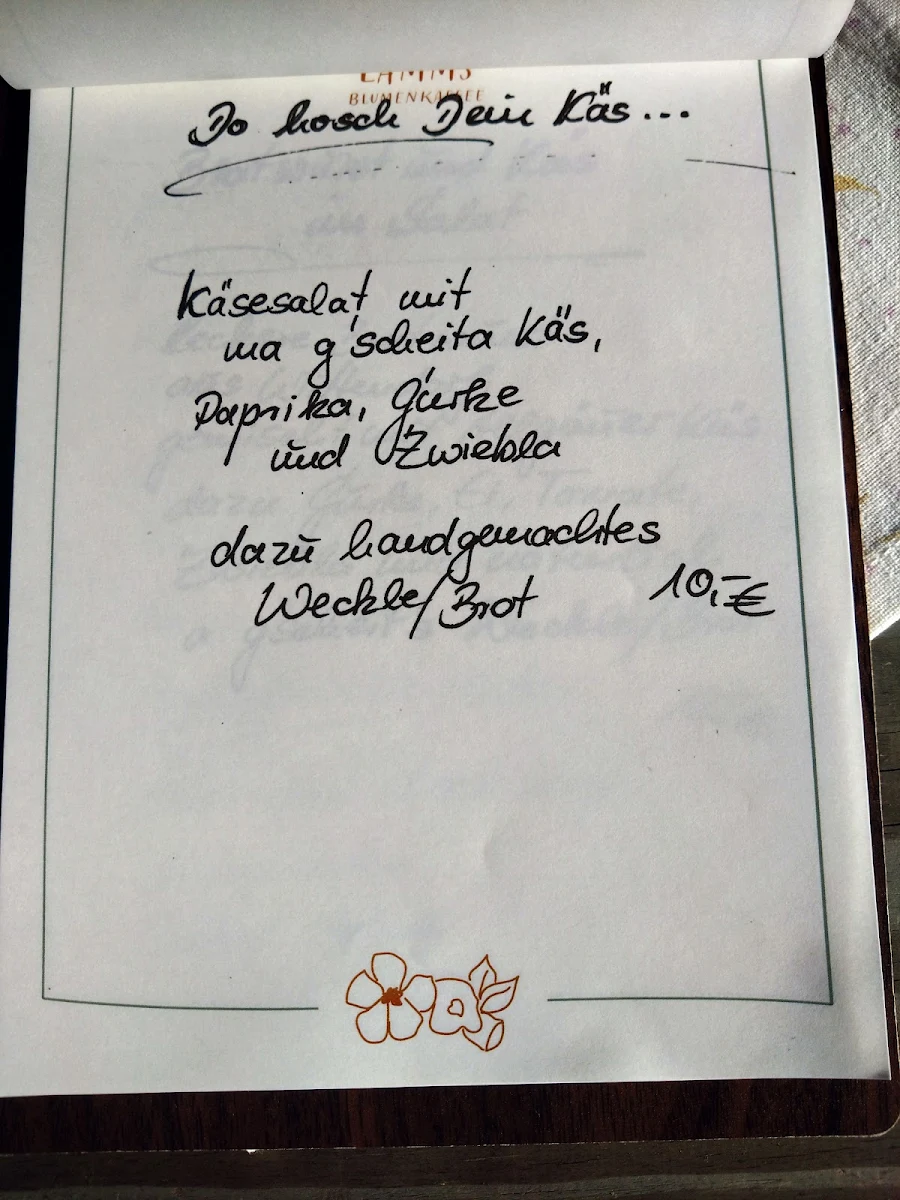 LAMMS
BLUMENKAFFEE
Do hosch Dein Käs...
Käsesalat mit
ma g'scheita Käs,
Paprika, Gurke
und Zwiebla
dazu handgemachtes
Weckle/Brot 10,-€